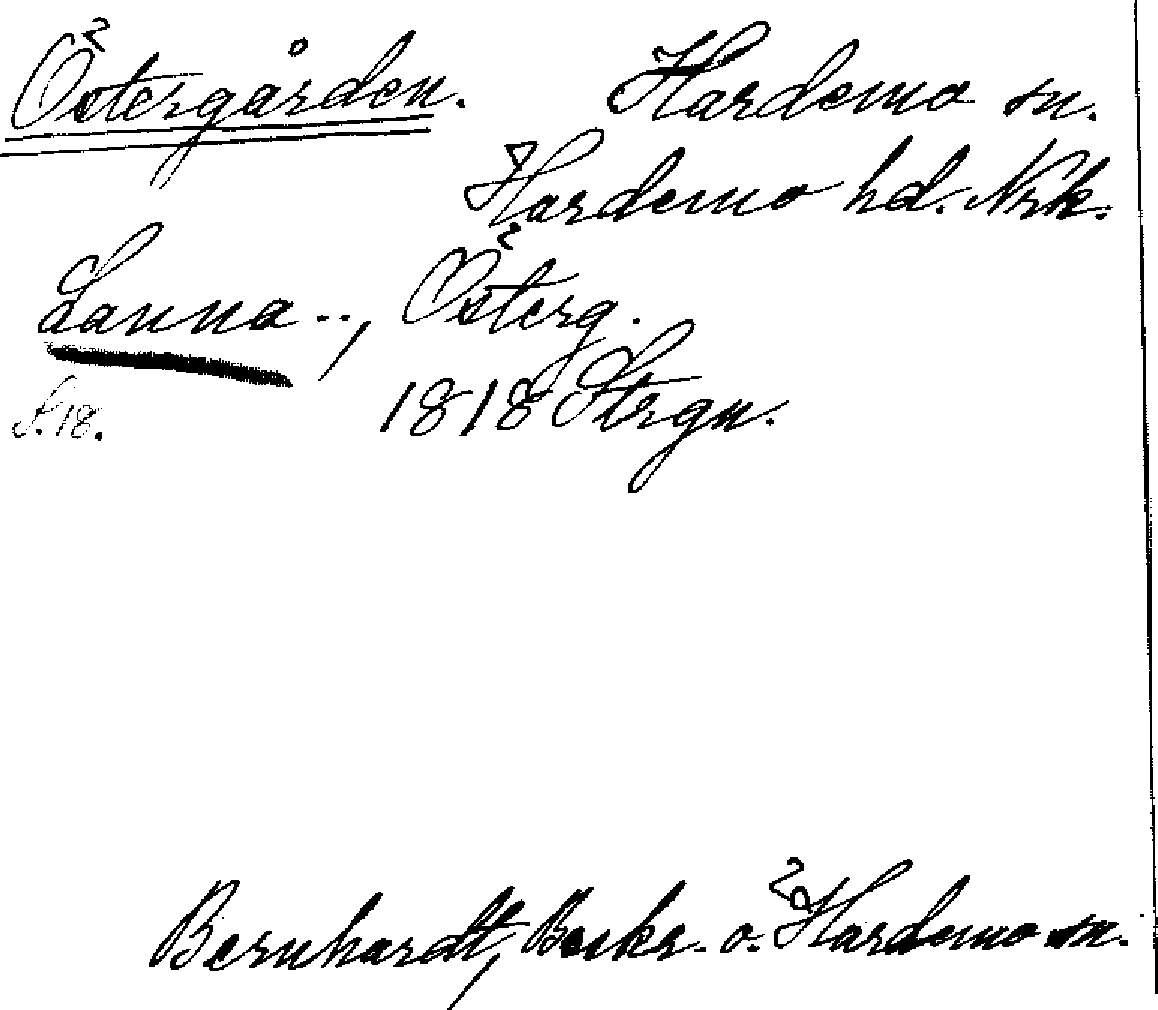 Östergården. Hardemo sn.
Hardemo hd. Nrk.
Lanna --, Österg.
S. 18. 1818 Strgn.
Bernhardt, Beskr. ö. Hardemo sn.